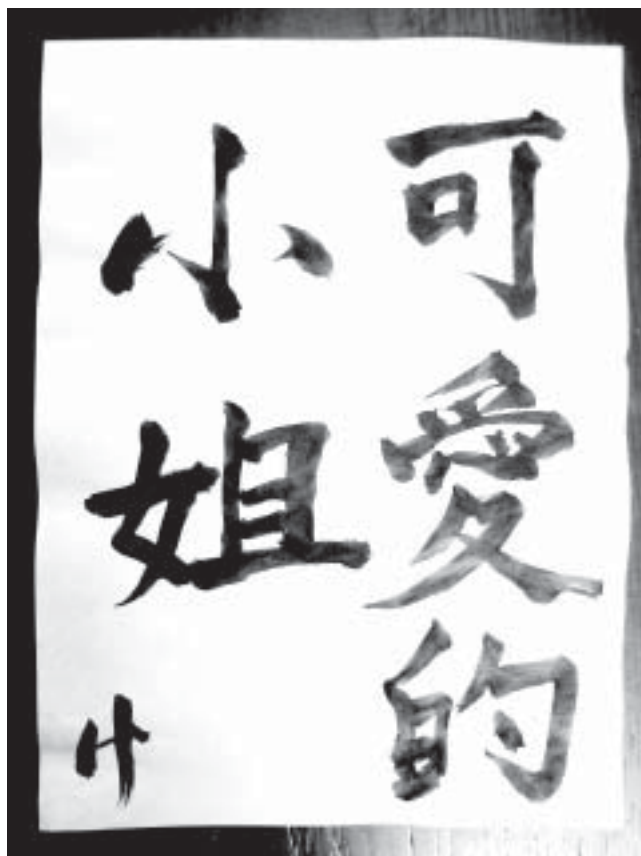 可愛的
小姐